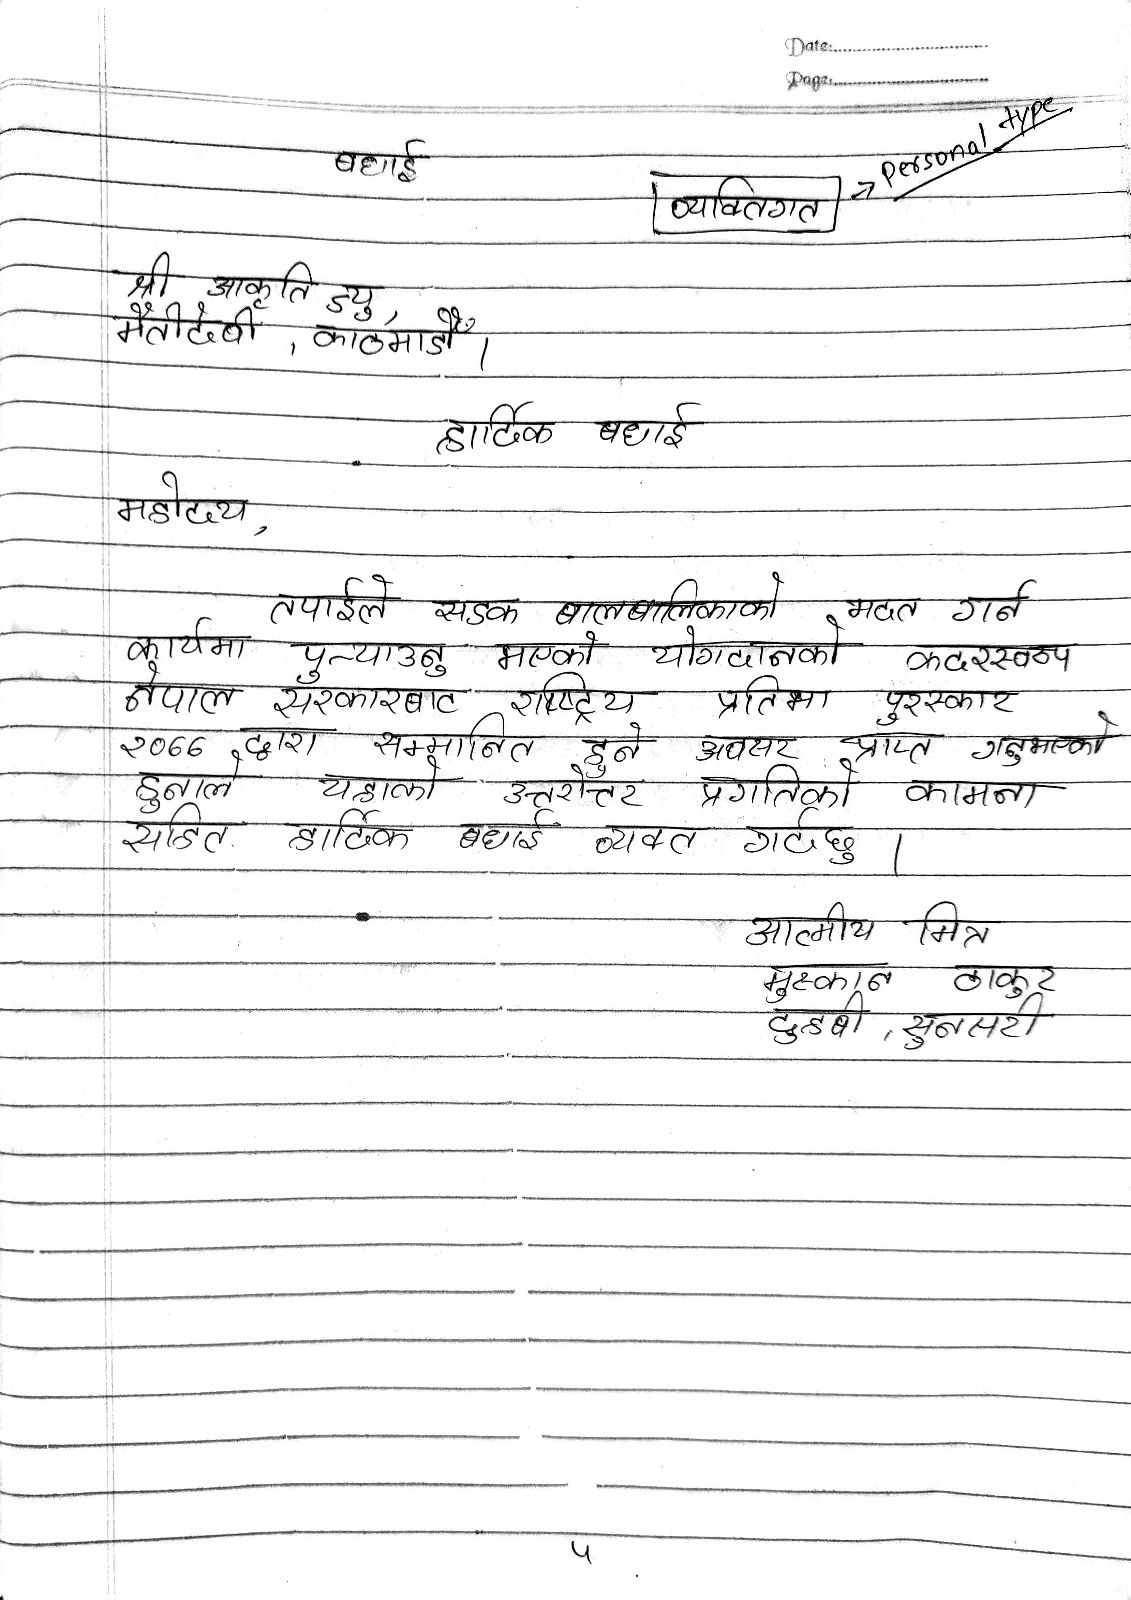 Date:
Page:
बधाई
व्यक्तिगत → personal type
श्री आकृति ड्यु,
मैतीदेवी, काठमाडौँ।
हार्दिक बधाई
महोदय,
तपाईले सडक बालबालिकाको मद्दत गर्न
कार्यमा पुर्‍याउनु भएको योगदानको कदरस्वरुप
नेपाल सरकारबाट राष्ट्रिय प्रतिभा पुरस्कार
२०६६ द्वारा सम्मानित हुने अवसर प्राप्त गर्नुभएको
हुनाले यहाको उत्तरोत्तर प्रगतिको कामना
सहित हार्दिक बधाई व्यक्त गर्दछु।
आत्मीय मित्र
मुस्कान ठाकुर
दुहबी, सुनसरी
५